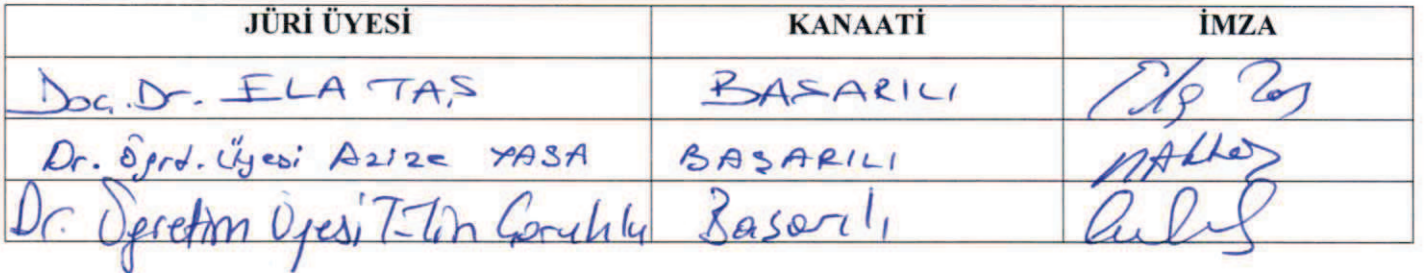 JÜRİ ÜYESİ KANAATİ İMZA
Doç. Dr. ELA TAŞ BAŞARILI Ela Taş
Dr. Öğrt. Üyesi Azize YASA BAŞARILI
Dr. Öğretim Üyesi T-Tin Çoruhlu Başarılı